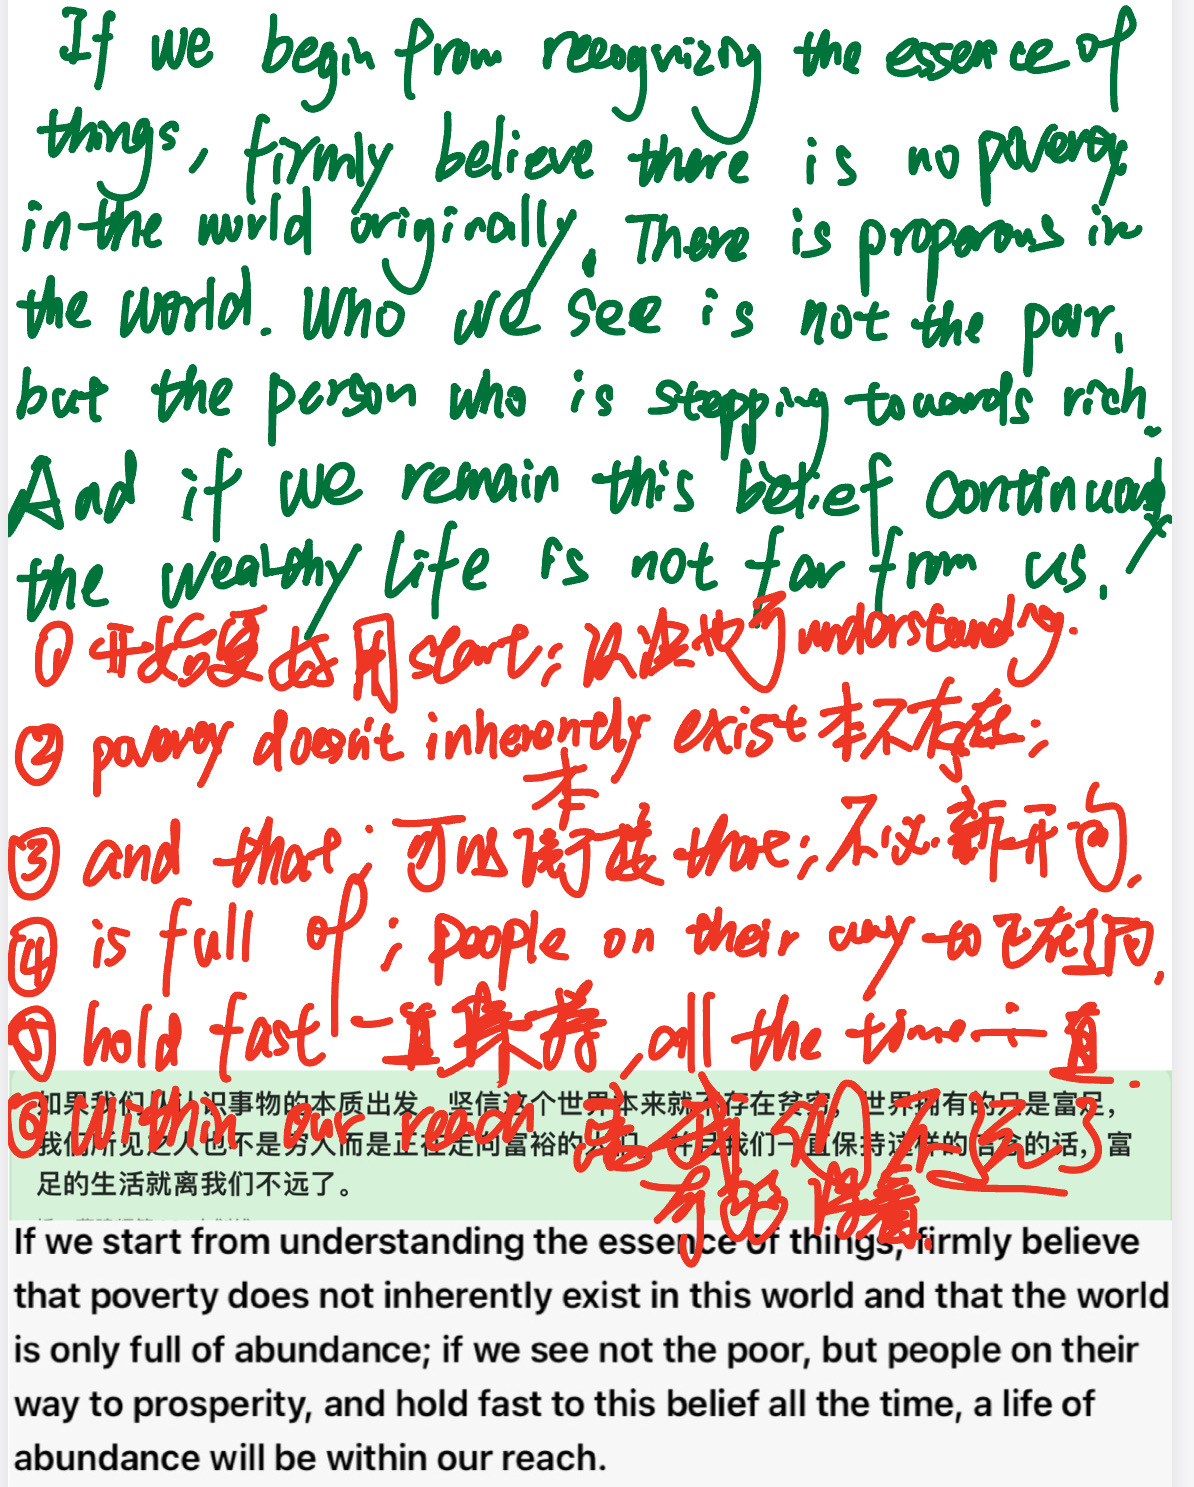 If we begin from recognizing the essence of
things, firmly believe there is no poverty
in the world originally. There is properous in
the world. Who we see is not the poor,
but the person who is stepping towards rich.
And if we remain this belief
the wealthy life is not far from us.
① 开始 用 start; 认识 understanding.
② poverty doesn't inherently exist 本不存在;
本
③ and that; 可以 that; 不必新开句.
④ is full of; people on their way to 正在走向.
⑤ hold fast 一直保持, all the time 一直.
⑥ Within our reach 离我们不远了
如果我们从认识事物的本质出发，坚信这个世界本来就不存在贫穷，世界拥有的只是富足，
我们所见之人也不是穷人而是正在走向富裕的人们，并且我们一直保持这样的信念的话，富
足的生活就离我们不远了。
If we start from understanding the essence of things, firmly believe
that poverty does not inherently exist in this world and that the world
is only full of abundance; if we see not the poor, but people on their
way to prosperity, and hold fast to this belief all the time, a life of
abundance will be within our reach.